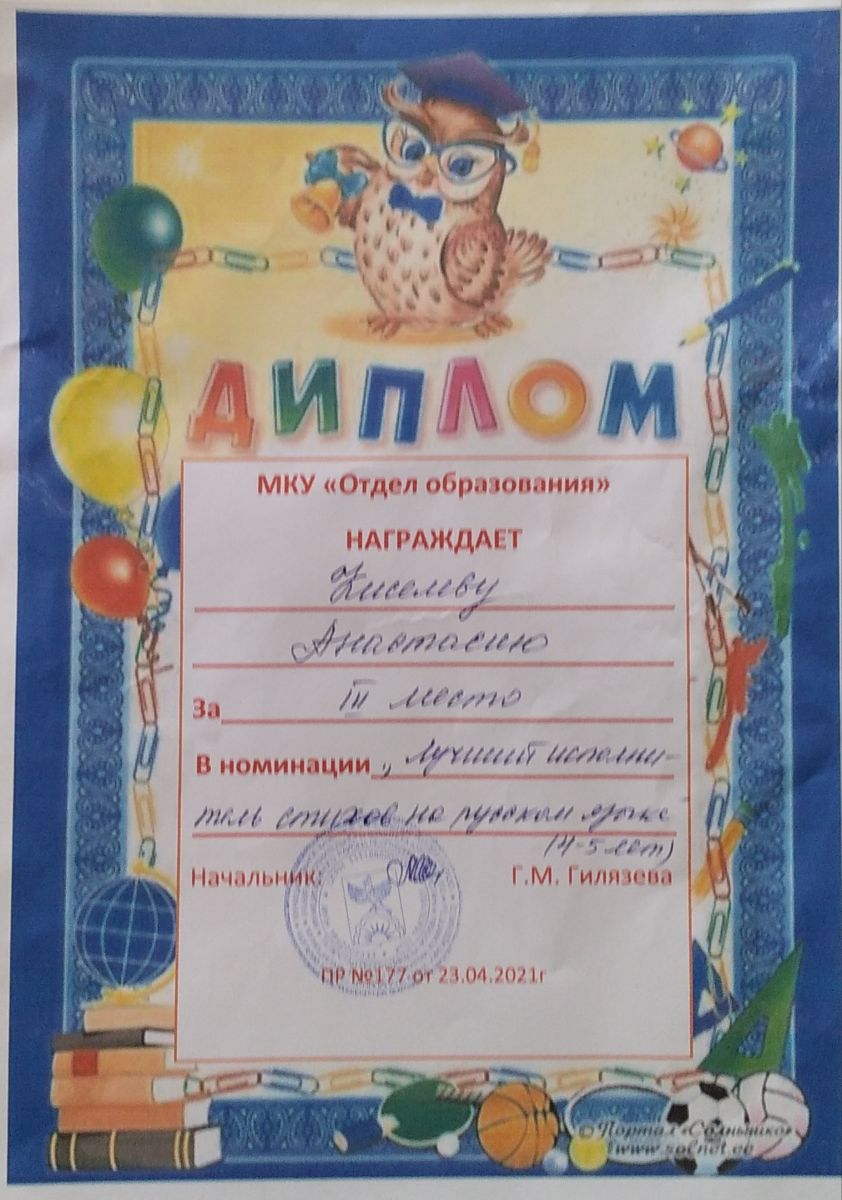 ДИПЛОМ
МКУ «Отдел образования»
НАГРАЖДАЕТ
Киселеву
Анастасию
За III место
В номинации „Лучший исполни-
тель стихов на русском языке
(4-5 лет)
Начальник: Г.М. Гилязева
ПР №177 от 23.04.2021г
© Портал «Солнышко»
www.solnet.ee